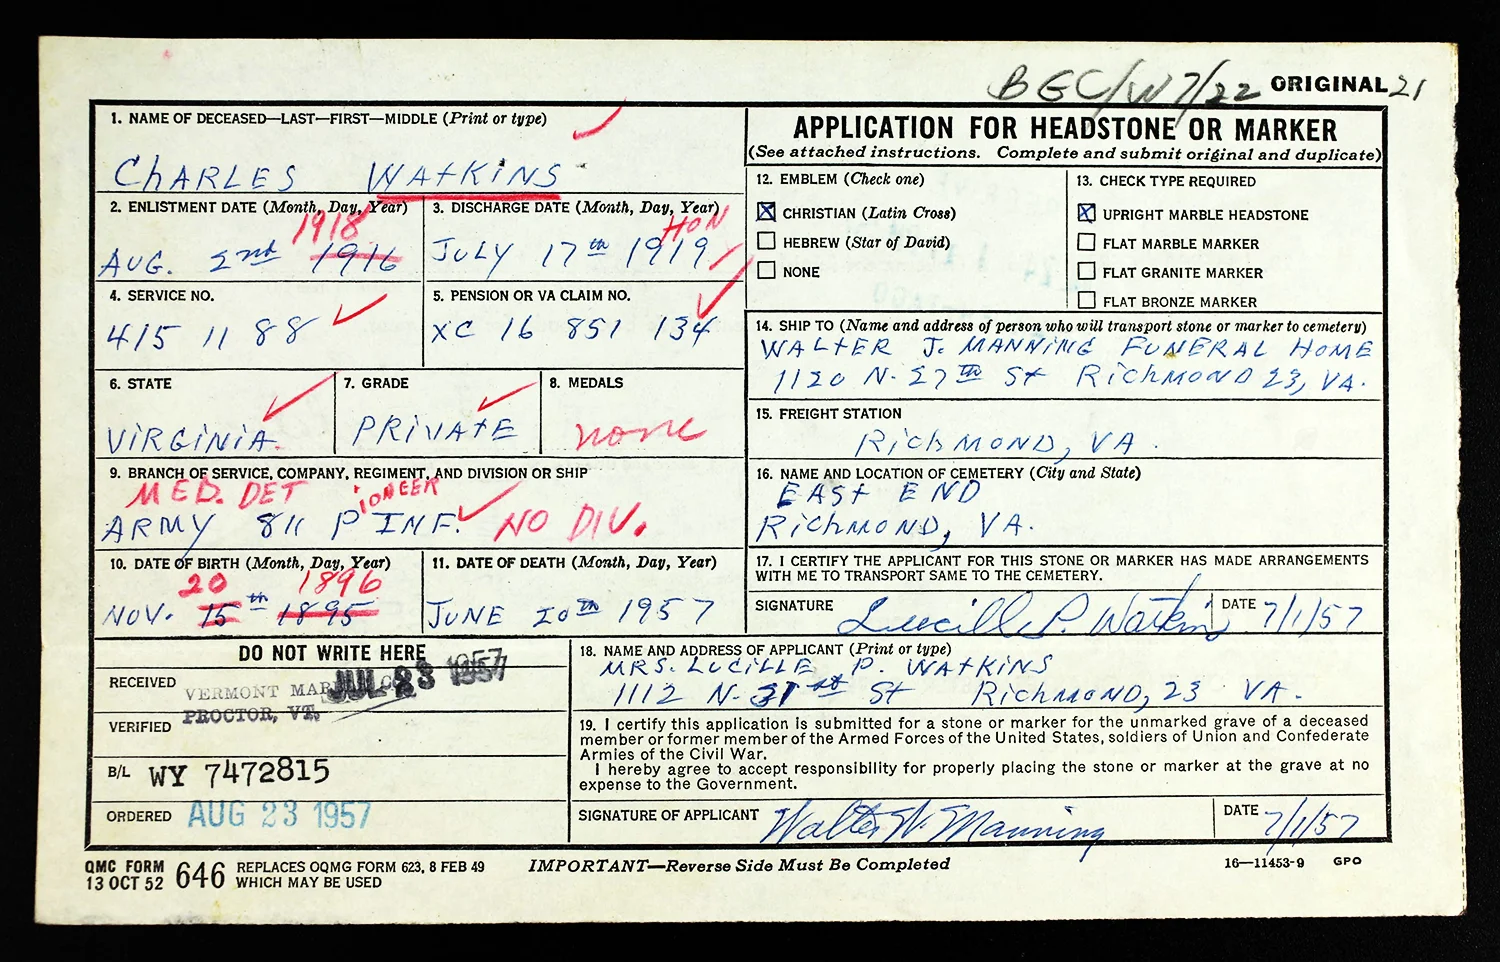 BGC/W 7/22 ORIGINAL 21
1. NAME OF DECEASED—LAST—FIRST—MIDDLE (Print or type)
CHARLES WATKINS
2. ENLISTMENT DATE (Month, Day, Year)
1918
AUG. 2nd 1916
3. DISCHARGE DATE (Month, Day, Year)
HON
JULY 17th 1919
4. SERVICE NO.
415 11 88
5. PENSION OR VA CLAIM NO.
XC 16 851 134
6. STATE
VIRGINIA
7. GRADE
PRIVATE
8. MEDALS
none
9. BRANCH OF SERVICE, COMPANY, REGIMENT, AND DIVISION OR SHIP
MED. DET IONEER
ARMY 811 P INF. NO DIV.
10. DATE OF BIRTH (Month, Day, Year)
20 1896
NOV. 15th 1895
11. DATE OF DEATH (Month, Day, Year)
JUNE 20th 1957
APPLICATION FOR HEADSTONE OR MARKER
(See attached instructions. Complete and submit original and duplicate)
12. EMBLEM (Check one)
CHRISTIAN (Latin Cross)
HEBREW (Star of David)
NONE
13. CHECK TYPE REQUIRED
UPRIGHT MARBLE HEADSTONE
FLAT MARBLE MARKER
FLAT GRANITE MARKER
FLAT BRONZE MARKER
14. SHIP TO (Name and address of person who will transport stone or marker to cemetery)
WALTER J. MANNING FUNERAL HOME
1120 N. 27TH St RICHMOND 23, VA.
15. FREIGHT STATION
RICHMOND, VA.
16. NAME AND LOCATION OF CEMETERY (City and State)
EAST END
RICHMOND, VA.
17. I CERTIFY THE APPLICANT FOR THIS STONE OR MARKER HAS MADE ARRANGEMENTS
WITH ME TO TRANSPORT SAME TO THE CEMETERY.
SIGNATURE Lucille P. Watkins DATE 7/1/57
DO NOT WRITE HERE
RECEIVED VERMONT MAR JUL 23 1957
PROCTOR, VT.
VERIFIED
B/L WY 7472815
ORDERED AUG 23 1957
18. NAME AND ADDRESS OF APPLICANT (Print or type)
MRS. LUCILLE P. WATKINS
1112 N. 31st St RICHMOND, 23 VA.
19. I certify this application is submitted for a stone or marker for the unmarked grave of a deceased
member or former member of the Armed Forces of the United States, soldiers of Union and Confederate
Armies of the Civil War.
I hereby agree to accept responsibility for properly placing the stone or marker at the grave at no
expense to the Government.
SIGNATURE OF APPLICANT Walter W. Manning DATE 7/1/57
QMC FORM
13 OCT 52 646 REPLACES OQMG FORM 623, 8 FEB 49
WHICH MAY BE USED
IMPORTANT—Reverse Side Must Be Completed
16—11453-9 GPO